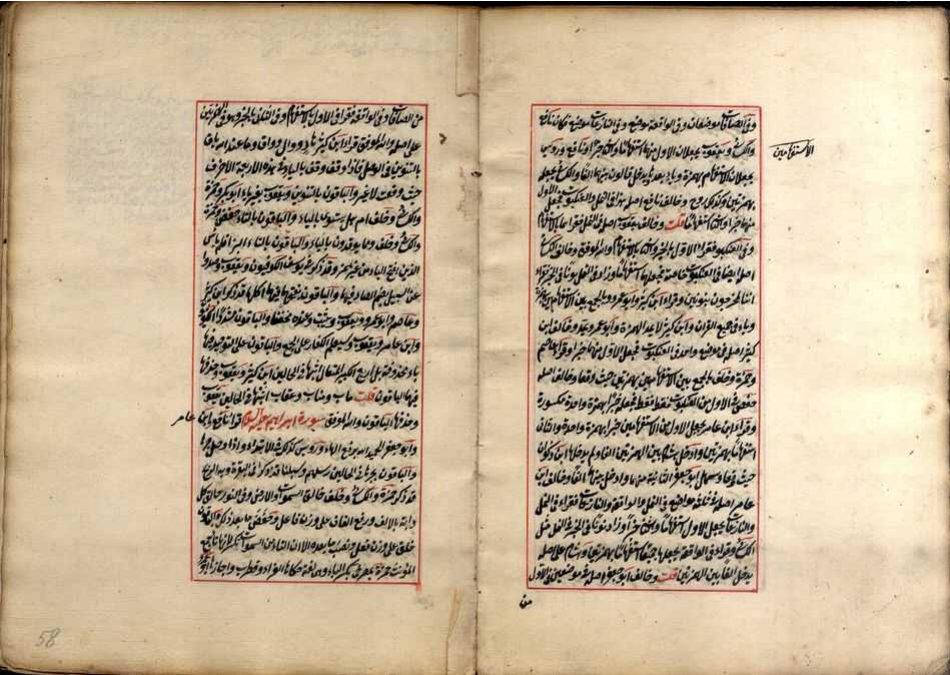 وفي الصافات موضعان وفي الواقعة موضع وفي النازعات موضع فكان نافع
والكسائي ويعقوب يجعلان الاول منهما استفهاما والثاني خبرا ونافع ورويس
الاستفهامين
يجعلان الاستفهام بهمزة وياء بعدها ويدخل قالون بينهما الفا والكسائي يجعله
بهمزتين وكذلك روح وخالف نافع اصله هذا في النمل والعنكبوت فجعل الاول
منهما خبرا والثاني استفهاما قلت وخالف يعقوب اصله في النمل فقرا بالاستفهام
وفي العنكبوت فقرا الاول بالخبر والثاني بالاستفهام والله الموفق وخالف الكسائي
اصله ايضا في العنكبوت خاصة فجعلهما استفهاما وزاد في النمل نونا في الخبر فقرا
اننا لمخرجون بنونين وقرا ابن كثير وابو عمرو بالجمع بين الاستفهامين بهمزة
وياء في جميع القران وابن كثير لا يمد الهمزة وابو عمرو يمد وخالف ابن
كثير اصله في موضع واحد في العنكبوت فجعل الاول منهما خبرا وقرا عاصم
وحمزة وخلف بالجمع بين الاستفهامين بهمزتين حيث وقعا وخالف اصله
حفص في الاول من العنكبوت فقط فجعله خبرا بهمزة واحدة مكسورة
وقرا ابن عامر يجعل الاول من الاستفهامين خبرا بهمزة واحدة والثاني
استفهاما بهمزتين وادخل هشام بين الهمزتين الفا ولم يدخلها ابن ذكوان
حيث وقعا وسهل ابو جعفر الثانية منهما وادخل بينهما الفا وخالف ابن
عامر اصله في ثلثة مواضع في النمل والواقعة والنازعات فقرا في النمل
والنازعات يجعل الاول استفهاما والثاني خبرا وزاد نونا في الخبر في النمل مثل
الكسائي وقرا في الواقعة يجعلهما جميعا استفهاما بهمزتين وهشام على اصله
يدخل الفا بين الهمزتين قلت وخالف ابو جعفر اصله في موضعين في الاول
من
من الصافات وفي الواقعة فقرا في الاول بالاستفهام وفي الثاني بالخبر
على اصله والله الموفق قرا ابن كثير هاد ووال وواق وما عند الله باق
بالتنوين في الوصل فاذا وقف وقف بالياء في هذه الاربعة الاحرف
حيث وقعت لا غير والباقون بالتنوين وبغير ياء ابو بكر وحمزة
والكسائي وخلف ام هل يستوي بالياء والباقون بالتاء حفص وحمزة
والكسائي وخلف ومما يوقدون بالياء والباقون بالتاء البزي افلم يايس
الذين بفتح الياء من غير همز وقد ذكر في يوسف الكوفيون ويعقوب وصدوا
عن السبيل بضم الصاد فيهما والباقون بفتحها فيهما اكلها قد ذكر ابن كثير
وعاصم وابو عمرو ويعقوب ويثبت وعنده مخففا والباقون مشددا الكوفيون
وابن عامر ويعقوب وسيعلم الكفار على الجمع والباقون على التوحيد فيها
ياء محذوفة بل اربع الكبير المتعال اثبتها في الحالين ابن كثير ويعقوب وحذفها
فيهما الباقون قلت ماب ومتاب وعقاب اثبتها في الحالين يعقوب
وحذفها الباقون والله الموفق سورة ابراهيم عليه السلام قرا نافع وابن
عامر
وابو جعفر الحميد الله برفع الهاء ورويس كذلك في الابتداء واذا وصل جرها
والباقون بجرها في الحالين رسلهم وسبلنا قد ذكر في البقرة وبه الريح
قد ذكر حمزة والكسائي وخلف خالق السموات والارض وفي النور خالق كل
دابة بالالف ورفع القاف على وزن فاعل وخفض ما بعد ذلك والباقون
خلق على وزن فعل ونصب ما بعده الا ان التاء من السموات تكسر لانها تاء جمع
المونث حمزة بمصرخي بكسر الياء وهي لغة حكاها الفراء وقطرب واجازها ابو
58